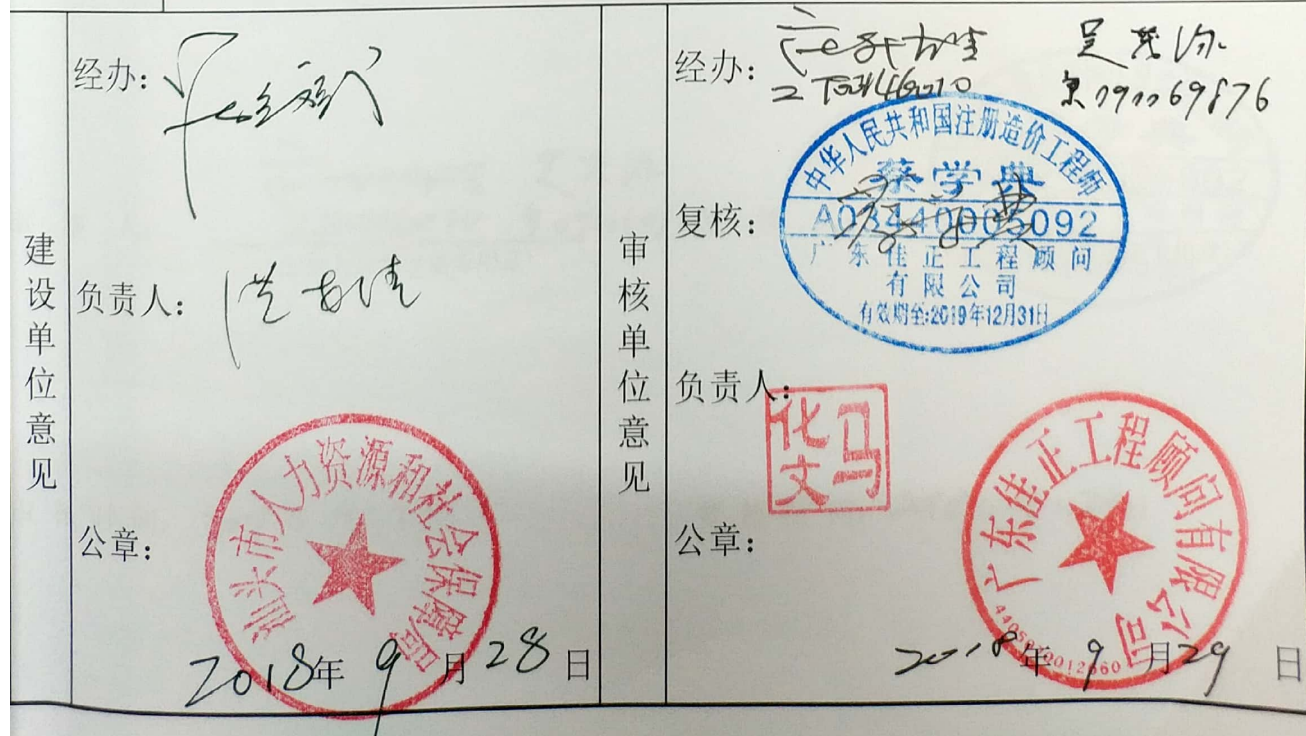 建设单位意见
经办：
负责人：
公章：
汕头市人力资源和社会保障局
2018年9月28日
审核单位意见
经办：
复核：
中华人民共和国注册造价工程师
蔡学典
A08440005092
广东佳正工程顾问
有限公司
有效期至:2019年12月31日
负责人：
马化文
公章：
广东佳正工程顾问有限公司
2018年9月29日